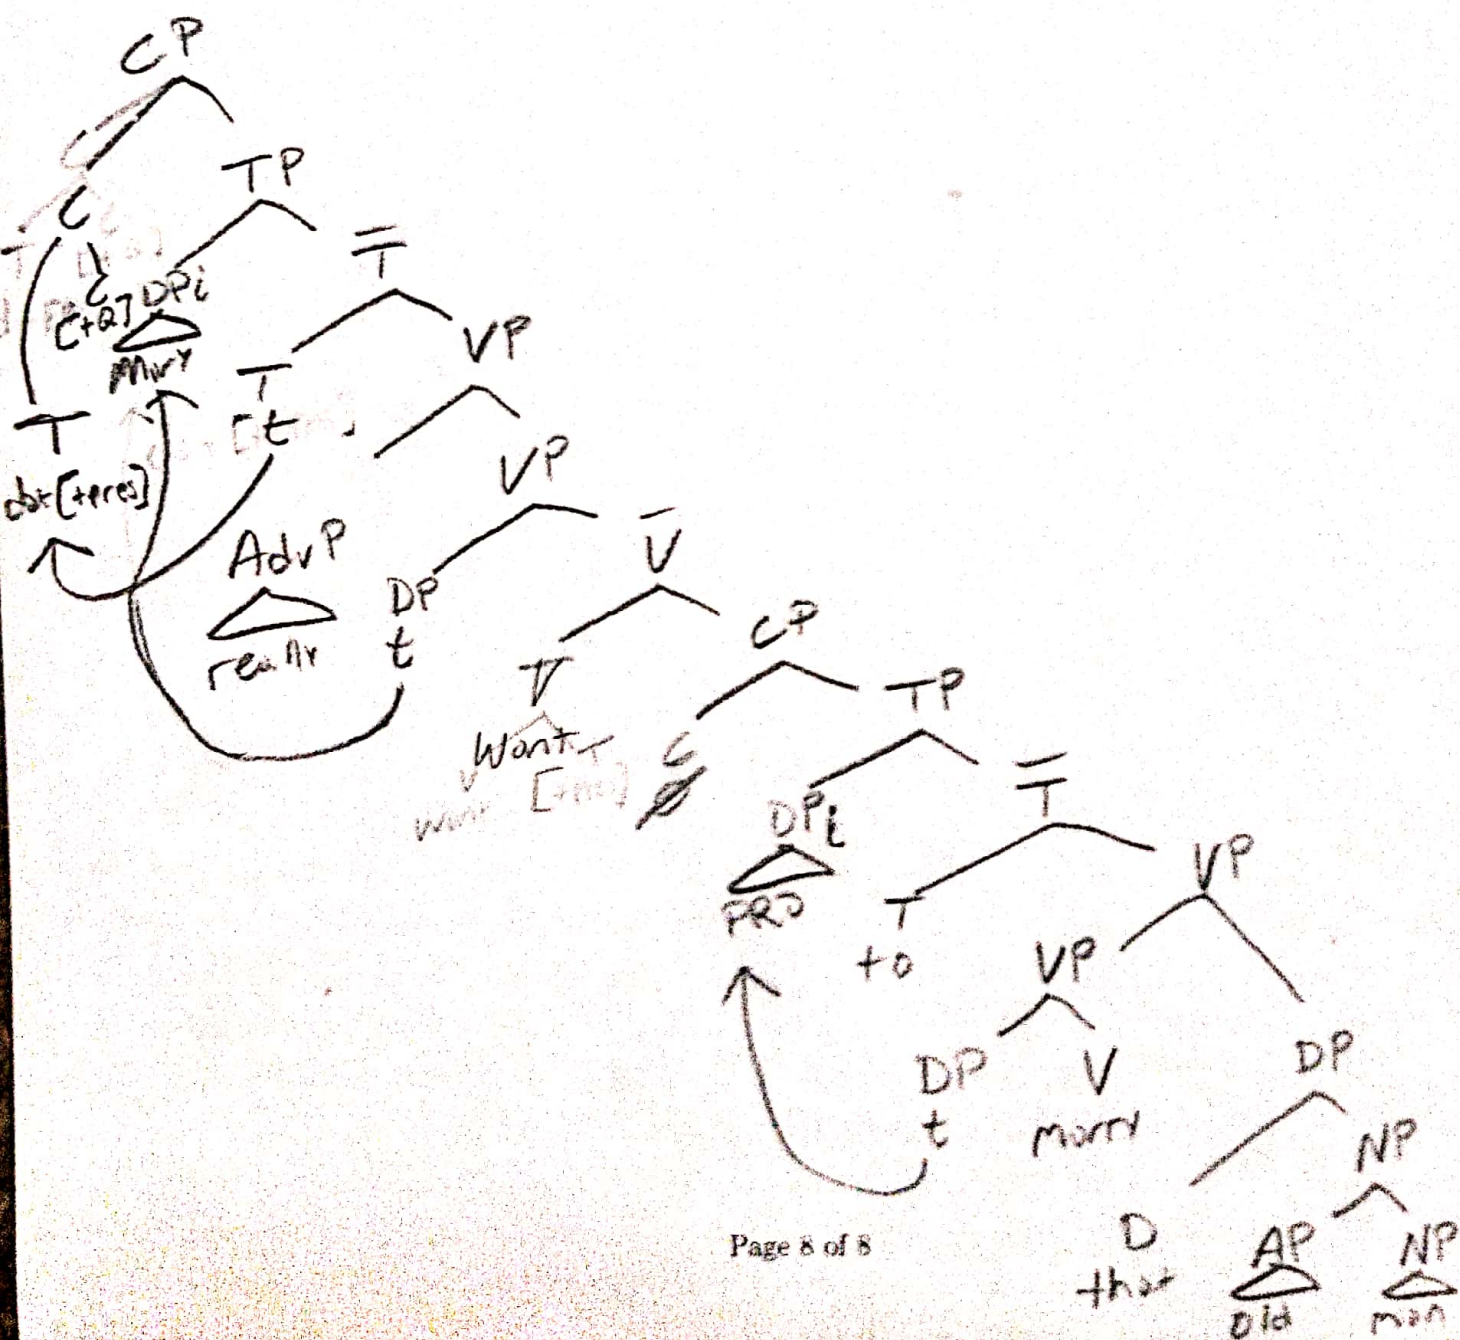 CP
C
TP
C
[+Q]
DPi
Mary
T
T
t
VP
T
[+pres]
VP
AdvP
really
DP
t
V
V
Want
CP
C
∅
TP
DPi
PRO
T
T
to
VP
VP
DP
t
V
marry
DP
D
that
NP
AP
old
NP
man
Page 8 of 8